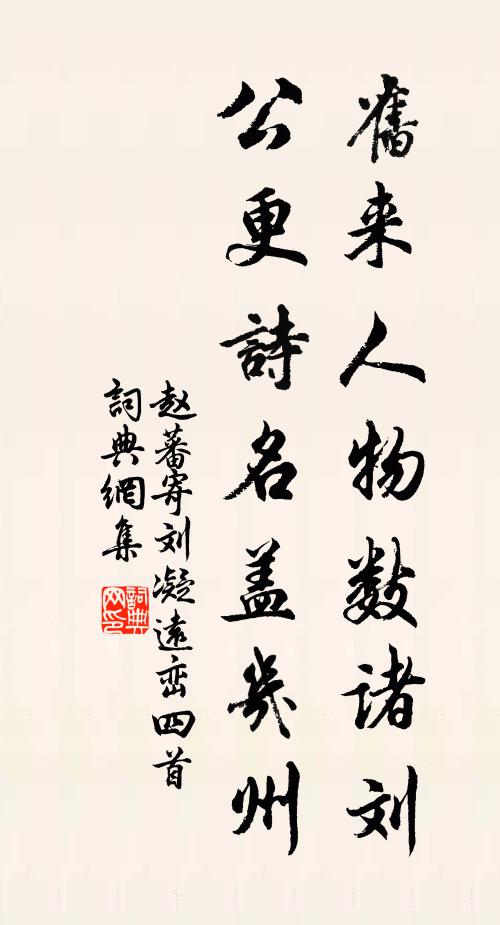 舊来人物数诸刘
公更詩名盖幾州
赵蕃寄刘凝遠峦四首
詞典網集
詞典
网印